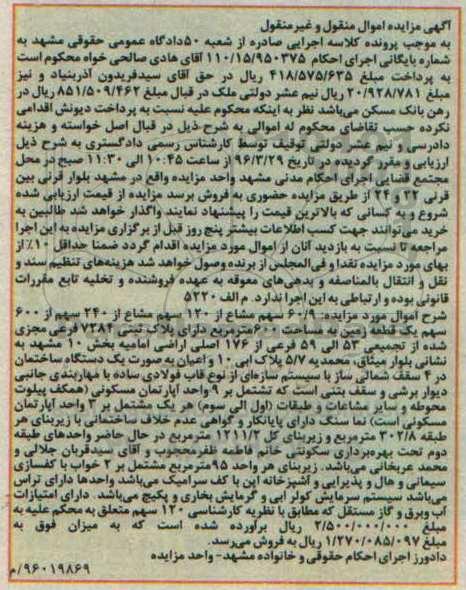 آگهی مزایده اموال منقول و غیرمنقول
به موجب پرونده کلاسه اجرایی صادره از شعبه ۵۰دادگاه عمومی حقوقی مشهد به
شماره بایگانی اجرای احکام ۱۱۰/۱۵/۹۵۰۳۷۵ آقای هادی صالحی خواه محکوم است
به پرداخت مبلغ ۴۱۸/۵۷۵/۶۳۵ ریال در حق آقای سیدفریدون آذربنیاد و نیز
مبلغ ۲۰/۹۲۸/۷۸۱ ریال نیم عشر دولتی ملک در قبال مبلغ ۸۵۱/۵۰۹/۴۶۲ ریال در
رهن بانک مسکن می‌باشد نظر به اینکه محکوم علیه نسبت به پرداخت دیونش اقدامی
نکرده حسب تقاضای محکوم له اموالی به شرح ذیل در قبال اصل خواسته و هزینه
دادرسی و نیم عشر دولتی توقیف توسط کارشناس رسمی دادگستری به شرح ذیل
ارزیابی و مقرر گردیده در تاریخ ۹۶/۳/۲۹ از ساعت ۱۰:۴۵ الی ۱۱:۳۰ صبح در محل
مجتمع قضایی اجرای احکام مدنی مشهد واحد مزایده واقع در مشهد بلوار قرنی بین
قرنی ۲۲ و ۲۴ از طریق مزایده حضوری به فروش برسد مزایده از قیمت ارزیابی شده
شروع و به کسانی که بالاترین قیمت را پیشنهاد نمایند واگذار خواهد شد طالبین به
خرید می‌توانند جهت کسب اطلاعات بیشتر پنج روز قبل از برگزاری مزایده به این اجرا
مراجعه تا نسبت به بازدید آنان از اموال مورد مزایده اقدام گردد ضمنا حداقل ۱۰٪ از
بهای مورد مزایده نقدا و فی‌المجلس از برنده وصول خواهد شد هزینه‌های تنظیم سند و
نقل و انتقال بالمناصفه و بدهی‌های معوقه به عهده فروشنده و تخلیه تابع مقررات
قانونی بوده و ارتباطی به این اجرا ندارد. م الف ۵۲۲۰
شرح اموال مورد مزایده: ۶۰/۹ سهم مشاع از ۱۲۰ سهم مشاع از ۲۴۰ سهم از ۶۰۰
سهم یک قطعه زمین به مساحت ۶۰۰مترمربع دارای پلاک ثبتی ۷۲۸۴ فرعی مجزی
شده از تجمیعی ۵۳ الی ۵۹ فرعی از ۱۷۶ اصلی اراضی امامیه بخش ۱۰ مشهد به
نشانی بلوار میثاق، محمدیه ۵/۷ پلاک ابی ۱۰ و اعیان به صورت یک دستگاه ساختمان
در ۴ سقف شمالی ساز با سیستم سازه‌ای از نوع قاب فولادی ساده با مهاربندی جانبی
دیوار برشی و سقف بتنی است که تشتمل بر ۹ واحد آپارتمان مسکونی (همکف پیلوت
محوطه و سایر مشاعات و طبقات (اول الی سوم) هر یک مشتمل بر ۳ واحد آپارتمان
مسکونی است) نما سنگ دارای پایانکار و گواهی عدم خلاف ساختمانی با زیربنای هر
طبقه ۳۰۲/۸ مترمربع و زیربنای کل ۱۲۱۱/۲ مترمربع در حال حاضر واحدهای طبقه
دوم تحت بهره‌برداری سکونتی خانم فاطمه ظفرمحجوب و آقای سیدقربان جلالی و
محمد عربخانی می‌باشد. زیربنای هر واحد ۹۵مترمربع مشتمل بر ۲ خواب با کفسازی
سیمانی و هال و پذیرایی و آشپزخانه اپن با کف سرامیک می‌باشد واحدها دارای تراس
می‌باشد سیستم سرمایش کولر آبی و گرمایش بخاری و پکیج می‌باشد. دارای امتیازات
آب وبرق و گاز مستقل که مطابق با نظریه کارشناسی ۱۲۰ سهم متعلق به محکم علیه به
مبلغ ۲/۵۰۰/۰۰۰/۰۰۰ ریال براورده شده است که به میزان فوق به
مبلغ ۱/۲۷۰/۰۸۵/۰۹۷ ریال به فروش می‌رسد.
دادورز اجرای احکام حقوقی و خانواده مشهد- واحد مزایده
۹۶۰۱۹۸۶۹/م